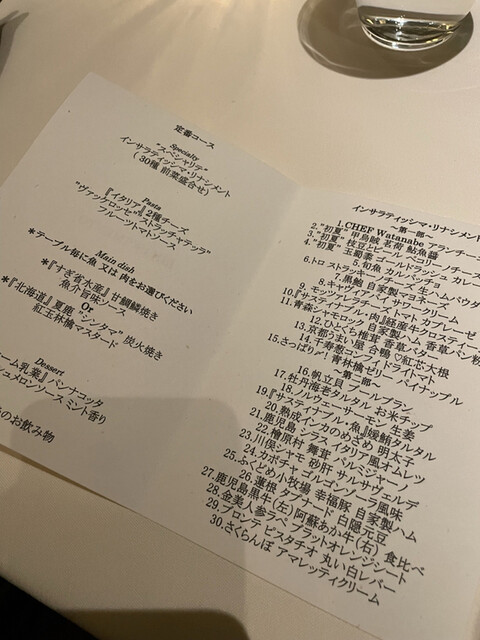 定番コース
Specialty
"スペシャリテ"
インサラティッシマ・リナシメント
(30種 前菜盛合せ)
Pasta
『イタリア』2種チーズ
"ヴァックロッセ" "ストラッチャテッラ"
フルーツトマトソース
Main dish
*テーブル毎に魚 又は 肉をお選びください
*『すさ省水産』甘鯛鱗焼き
魚介旨味ソース
Or
*『北海道』夏鹿 "シンタマ" 炭火焼き
紅玉林檎マスタード
Dessert
ーム乳業』パンナコッタ
シュメロンソース ミント香り
のお飲み物
インサラティッシマ・リナシメント
~第一部~
1. CHEF Watanabe アランチーニ
2."初夏" 甲烏賊 茗荷 鮎魚醤
3."初夏" 枝豆とビール ペコリーノチーズ
4."初夏" 玉蜀黍 ゴールドラッシュ カレー
5. 旬魚 カルパッチョ
6.トロ ストラッキーノチーズ 生ハムパウダー
7.黒鮑 自家製マヨネーズ
8.キャヴィア ペイザンヌ クリーム
9. モッツァレラ トマト カプレーゼ
10.『サステナブル・肉』経産牛 クロスティーニ
11. 青森シャモロック 自家製ハム 香草パン粉
12. ひとくち椎茸 香草バター
13. 京都うまい屋 合鴨 ♡紅芯大根
14. 千寿葱コンフィ ドライトマト
15.さっぱり♪ 青林檎ゼリー パイナップル
16. 帆立貝 ブールブラン
17. 牡丹海老タルタル お米チップ
18. ノルウェーサーモン 生姜
19.『サステイナブル・魚』媛鮪タルタル
20. 熟成インカのめざめ 明太子
21. 鹿児島シラス イタリア風オムレツ
22. 檜原村 舞茸 パルミジャーノ
23. 川俣シャモ 砂肝 サルサヴェルデ
24. カボチャ ゴルゴンゾーラ風味
25. ふくどめ小牧場 幸福豚 自家製ハム
26. 蓮根 タプナード 白隠元豆
27. 鹿児島黒牛(左)阿蘇あか牛(右) 食比べ
28. 金美人参ラペ ブラッドオレンジシート
29. ブロンテ ピスタチオ 丸い白レバー
30. さくらんぼ アマレッティクリーム